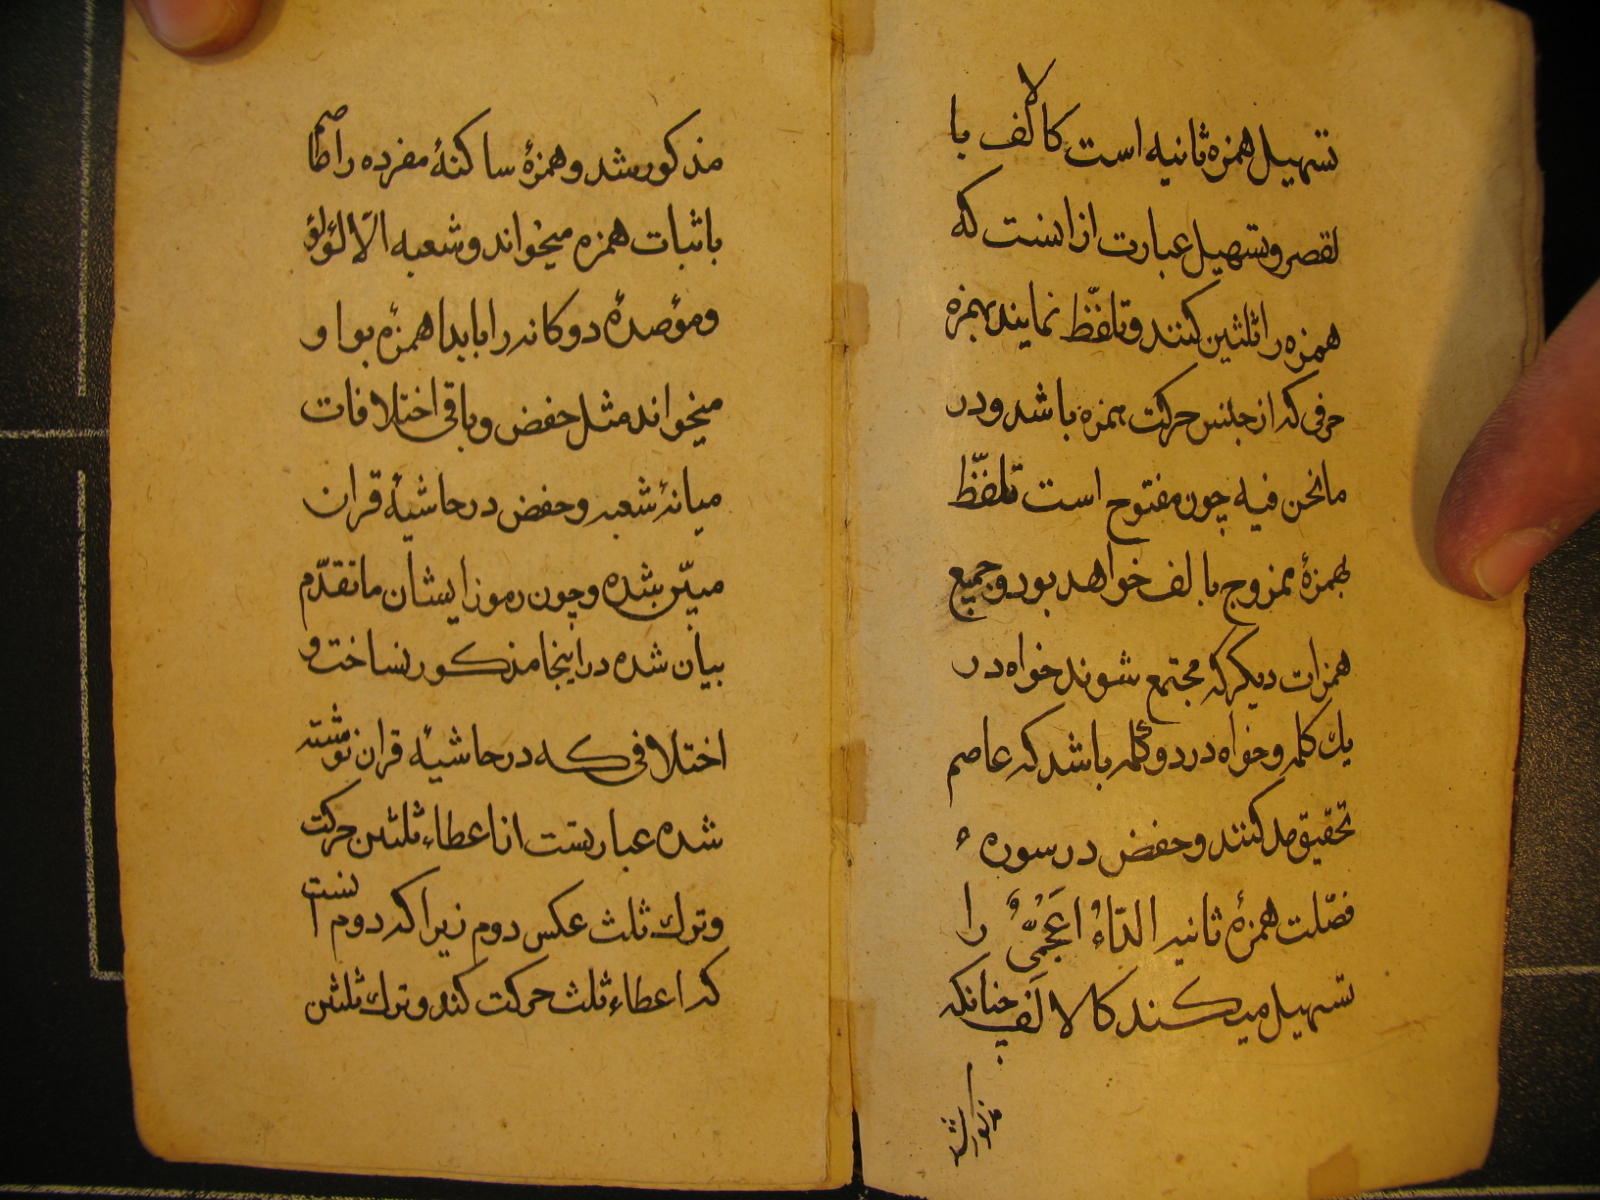 تسهیل همزه ثانیه است کالالف با
لقصر وتسهیل عبارت ازانست که
همزه را ثلثین کنند و تلفّظ نمایند بهمزه
حرفی که از جنس حرکت همزه باشد و در
مانحن فیه چون مفتوح است تلفّظ
بهمزهٔ ممزوج بالف خواهد بود و جمیع
همزات دیکر که مجتمع شوند خواه در
یك کلمه و خواه در دو کلمه باشد که عاصم
تحقیق مد کنند و حفض در سوره ء
فصّلت همزهٔ ثانیه ااعجمیٌّ را
تسهیل میکند کالالف چنانکه
مذکور شد
مذکور شد و همزهٔ ساکنهٔ مفرده را عاصم
باثبات همزه میخواند و شعبه الّا لؤلؤ
ومؤصدهٔ دوکانه را بابدا همزه بواو
میخواند مثل حفض و باقی اختلافات
میانهٔ شعبه و حفض در حاشیهٔ قران
مبیّن شده و چون رموز ایشان ماتقدّم
بیان شده در اینجا مذکور نساخت و
اختلافی که در حاشیهٔ قران نوشته
شده عبارتست از اعطاء ثلثین حرکت
وترك ثلث عکس دوم زیرا که دوم انست
که اعطاء ثلث حرکت کند و ترك ثلثین